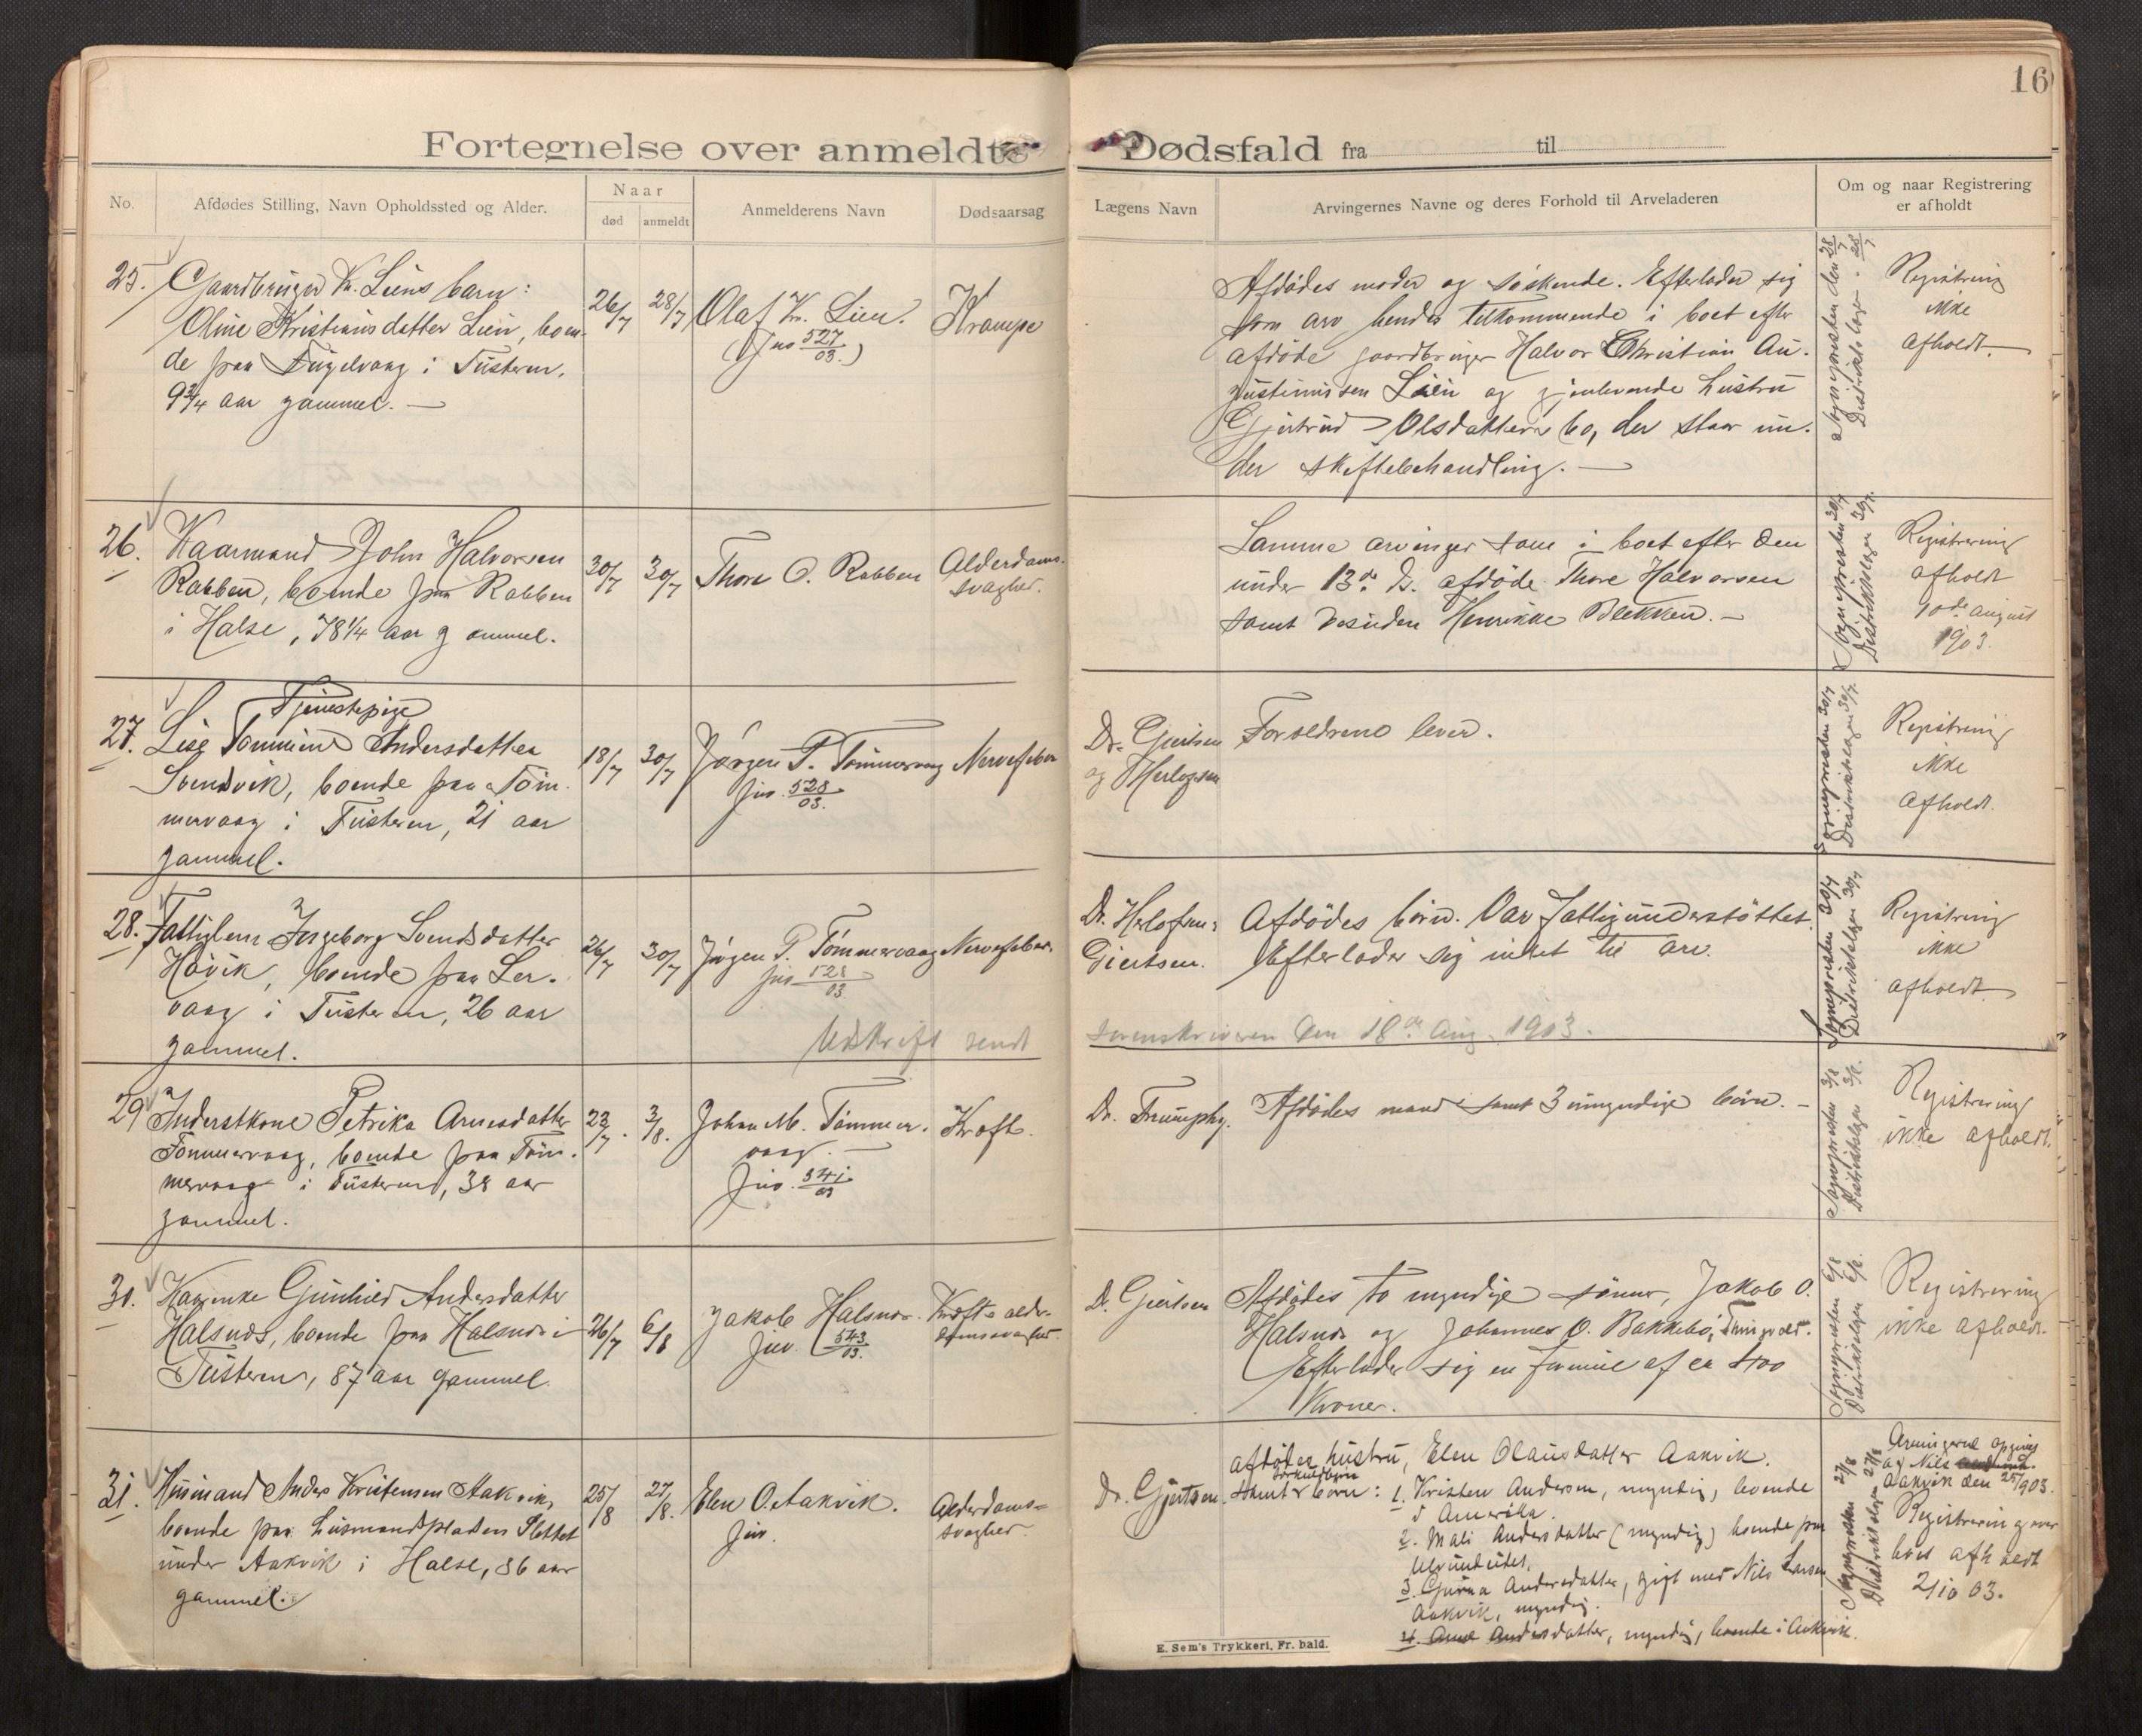 16
Fortegnelse over anmeldte Dødsfald fra til
No.
Afdødes Stilling, Navn Opholdssted og Alder.
Naar
død
anmeldt
Anmelderens Navn
Dødsaarsag
Lægens Navn
Arvingernes Navne og deres Forhold til Arveladeren
Om og naar Registrering
er afholdt
25.
Gaardbruger K. Liens barn:
Oline Kristiansdatter Lien, boen-
de paa Fugelvaag i Tusteren,
9 3/4 aar gammel. —
26/7
28/7
Olaf K. Lien.
(Jno 527/03.)
Krampe
Afdødes moder og søskende. Efterlader sig
som arv hendes tilkommende i boet efter
afdøde gaardbruger Halvor Christian Au-
gustinussen Lien og gjenlevende hustru
Gjertrud Olsdatters bo, der staar un-
der skiftebehandling. —
Sognepresten den 28/7
Distriktslægen 28/7
Registrering
ikke
afholdt.
26.
Kaarmand John Halvorsen
Rabben, boende paa Rabben
i Halse, 78 1/4 aar gammel.
30/7
30/7
Thore O. Rabben
Alderdoms-
svaghed.
Samme arvinger som i boet efter den
under 13de ds. afdøde Thore Halvorsen
samt desuden Henrikke Blekken. —
Sognepresten 30/7
Distriktslægen 30/7.
Registrering
afholdt
10de august
1903.
27.
Tjenestepige
Lise Andersdatter
Svendsvik, boende paa Tøm-
mervaag i Tusteren, 21 aar
gammel.
18/7
30/7
Jørgen P. Tømmervaag
Jno. 528/03.
Nervefeber
Dr. Gjertsen
og Herlofsen
Forældrene lever.
Sognepresten 30/7
Distriktslægen 30/7.
Registrering
ikke
afholdt.
28.
Fattiglem Ingeborg Svendsdatter
Håvik, boende paa Ler-
vaag i Tusteren, 26 aar
gammel.
26/7
30/7
Jørgen P. Tømmervaag
Jno 528/03
Nervefeber.
Dr. Herlofsen
Gjertsen.
Afdødes børn. Var fattigunderstøttet.
Efterlader sig intet til arv.
Sognepresten 30/7
Distriktslægen 30/7
Registrering
ikke
afholdt.
Udskrift sendt sorenskriveren den 18de Aug. 1903.
29
Inderstkone Petrika Arnesdatter
Tømmervaag, boende paa Tøm-
mervaag i Tusteren, 38 aar
gammel.
23/7.
3/8.
Johan M. Tømmer-
vaag. —
Jno. 541/03
Kræft.
Dr. Trumphy.
Afdødes mand samt 3 umyndige børn. —
Sognepresten 3/8
Distriktslægen 3/8.
Registrering
ikke afholdt.
30.
Kaarenke Gunhild Andersdatter
Halsnæs, boende paa Halsnæs i
Tusteren, 87 aar gammel.
26/7
6/8
Jakob Halsnæs.
Jno. 543/03.
Kræft & alder-
domssvaghed.
Dr. Gjertsen
Afdødes to myndige sønner, Jakob O.
Halsnæs og Johannes O. Bakkebø, Tingvold.
Efterlader sig en formue af ca 400
Kroner.
Sognepresten 6/8
Distriktslægen 6/8.
Registrering
ikke afholdt.
31.
Husmand Anders Kristensen Aakvik,
boende paa husmandspladsen Slettet
under Aakvik i Halse, 86 aar
gammel.
25/8
27/8.
Elen O. Aakvik.
Jno.
Alderdoms-
svaghed.
Dr. Gjertsen.
afdødes hustru, Elen Olausdatter Aakvik.
særkuldbørn
samt børn: 1. Kristen Andersen, myndig, boende
i Amerika.
2. Mali Andersdatter (myndig) boende paa
Ulvundeidet.
3. Andersdatter, gift med Nils Larsen
Aakvik, myndig.
4. Andersdatter, myndig, boende i Aakvik.
Sognepresten 27/8
Distriktslægen 27/8
Arvingerne opgivet
av Nils
Aakvik den 25/9 03.
Registrering over
boet afholdt
2/10 03.
E. Sem's Trykkeri, Fr. hald.